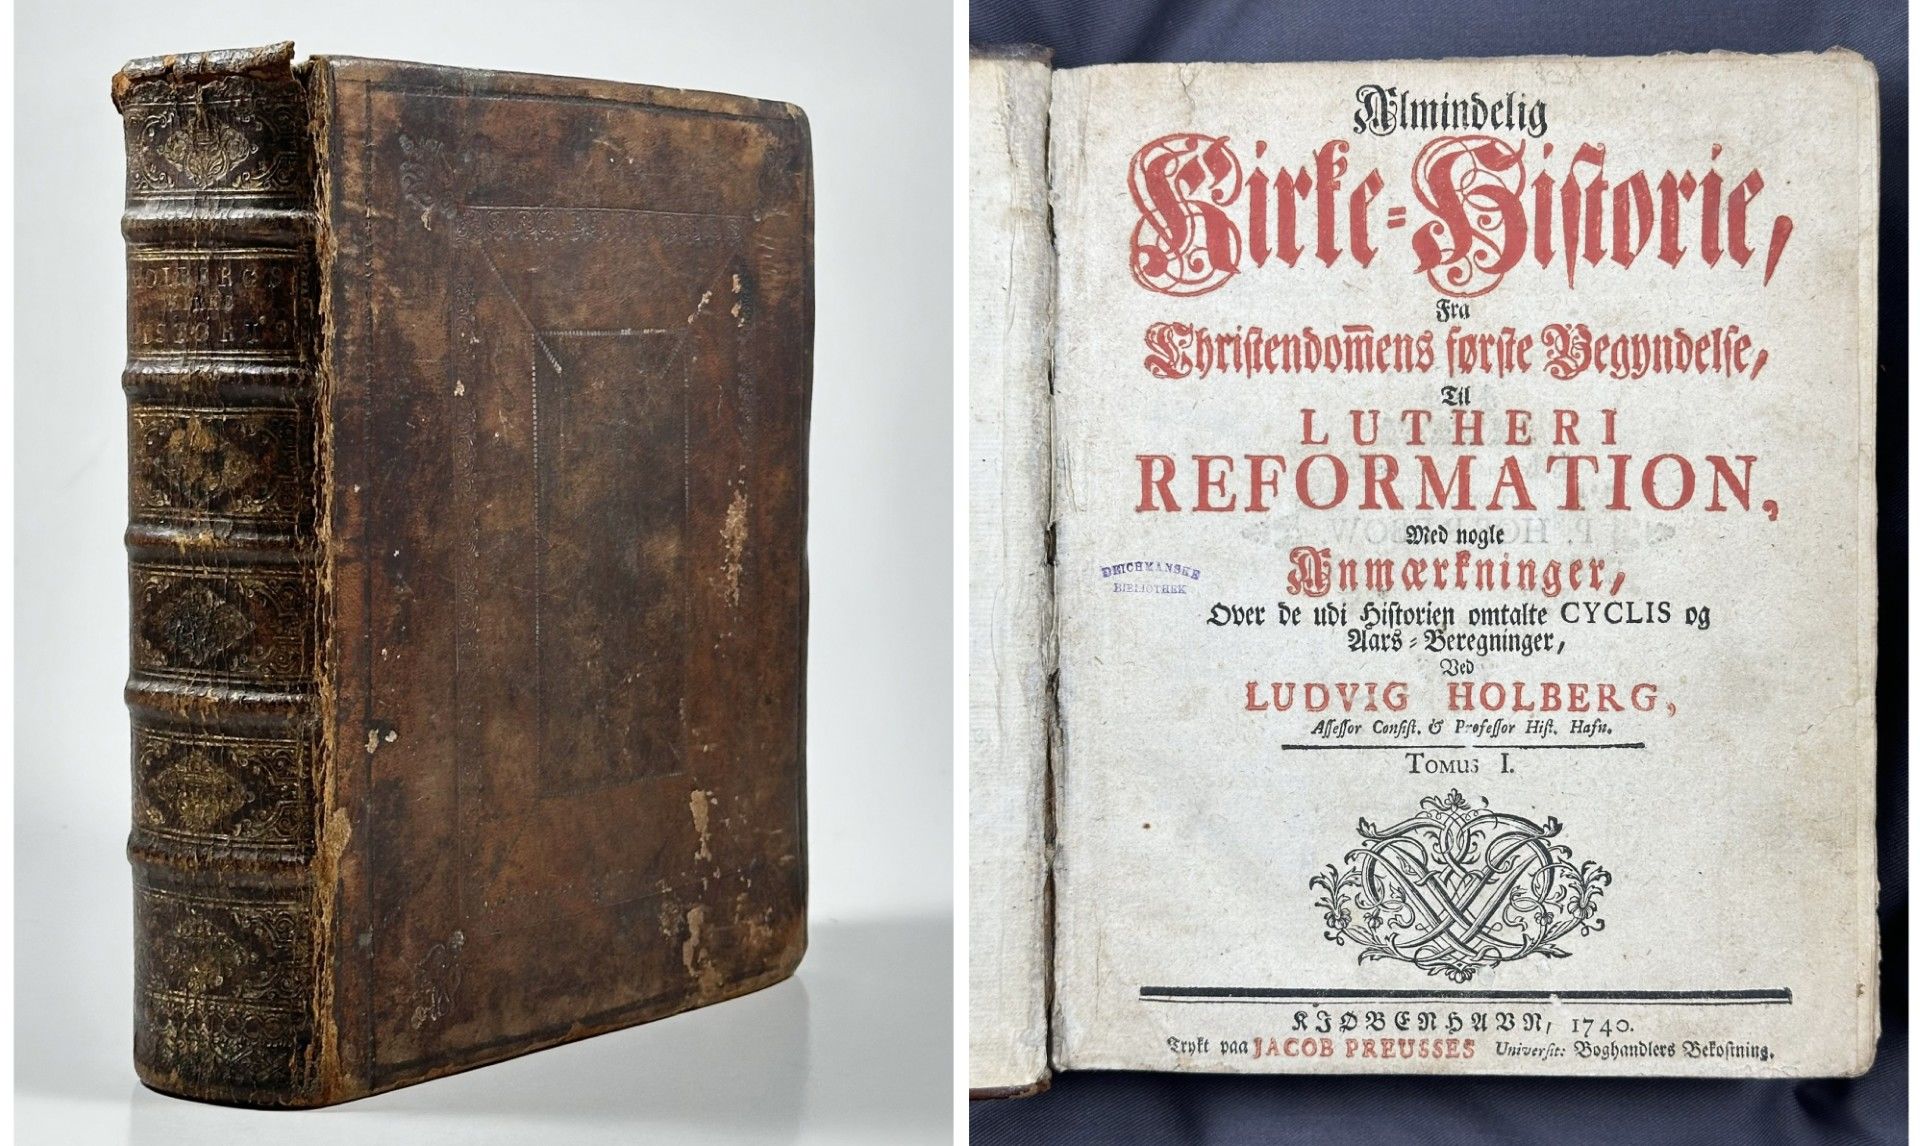 Almindelig
Kirke-Historie,
Fra
Christendom̅ens første Begyndelse,
Til
LUTHERI
REFORMATION,
Med nogle
Anmærkninger,
Over de udi Historien omtalte CYCLIS og
Aars-Beregninger,
Ved
LUDVIG HOLBERG,
Assessor Consist. & Professor Hist. Hafn.
TOMUS I.
KIØBENHAVN, 1740.
Trykt paa JACOB PREUSSES Universit: Boghandlers Bekostning.
DEICHMANSKE
BIBLIOTHEK